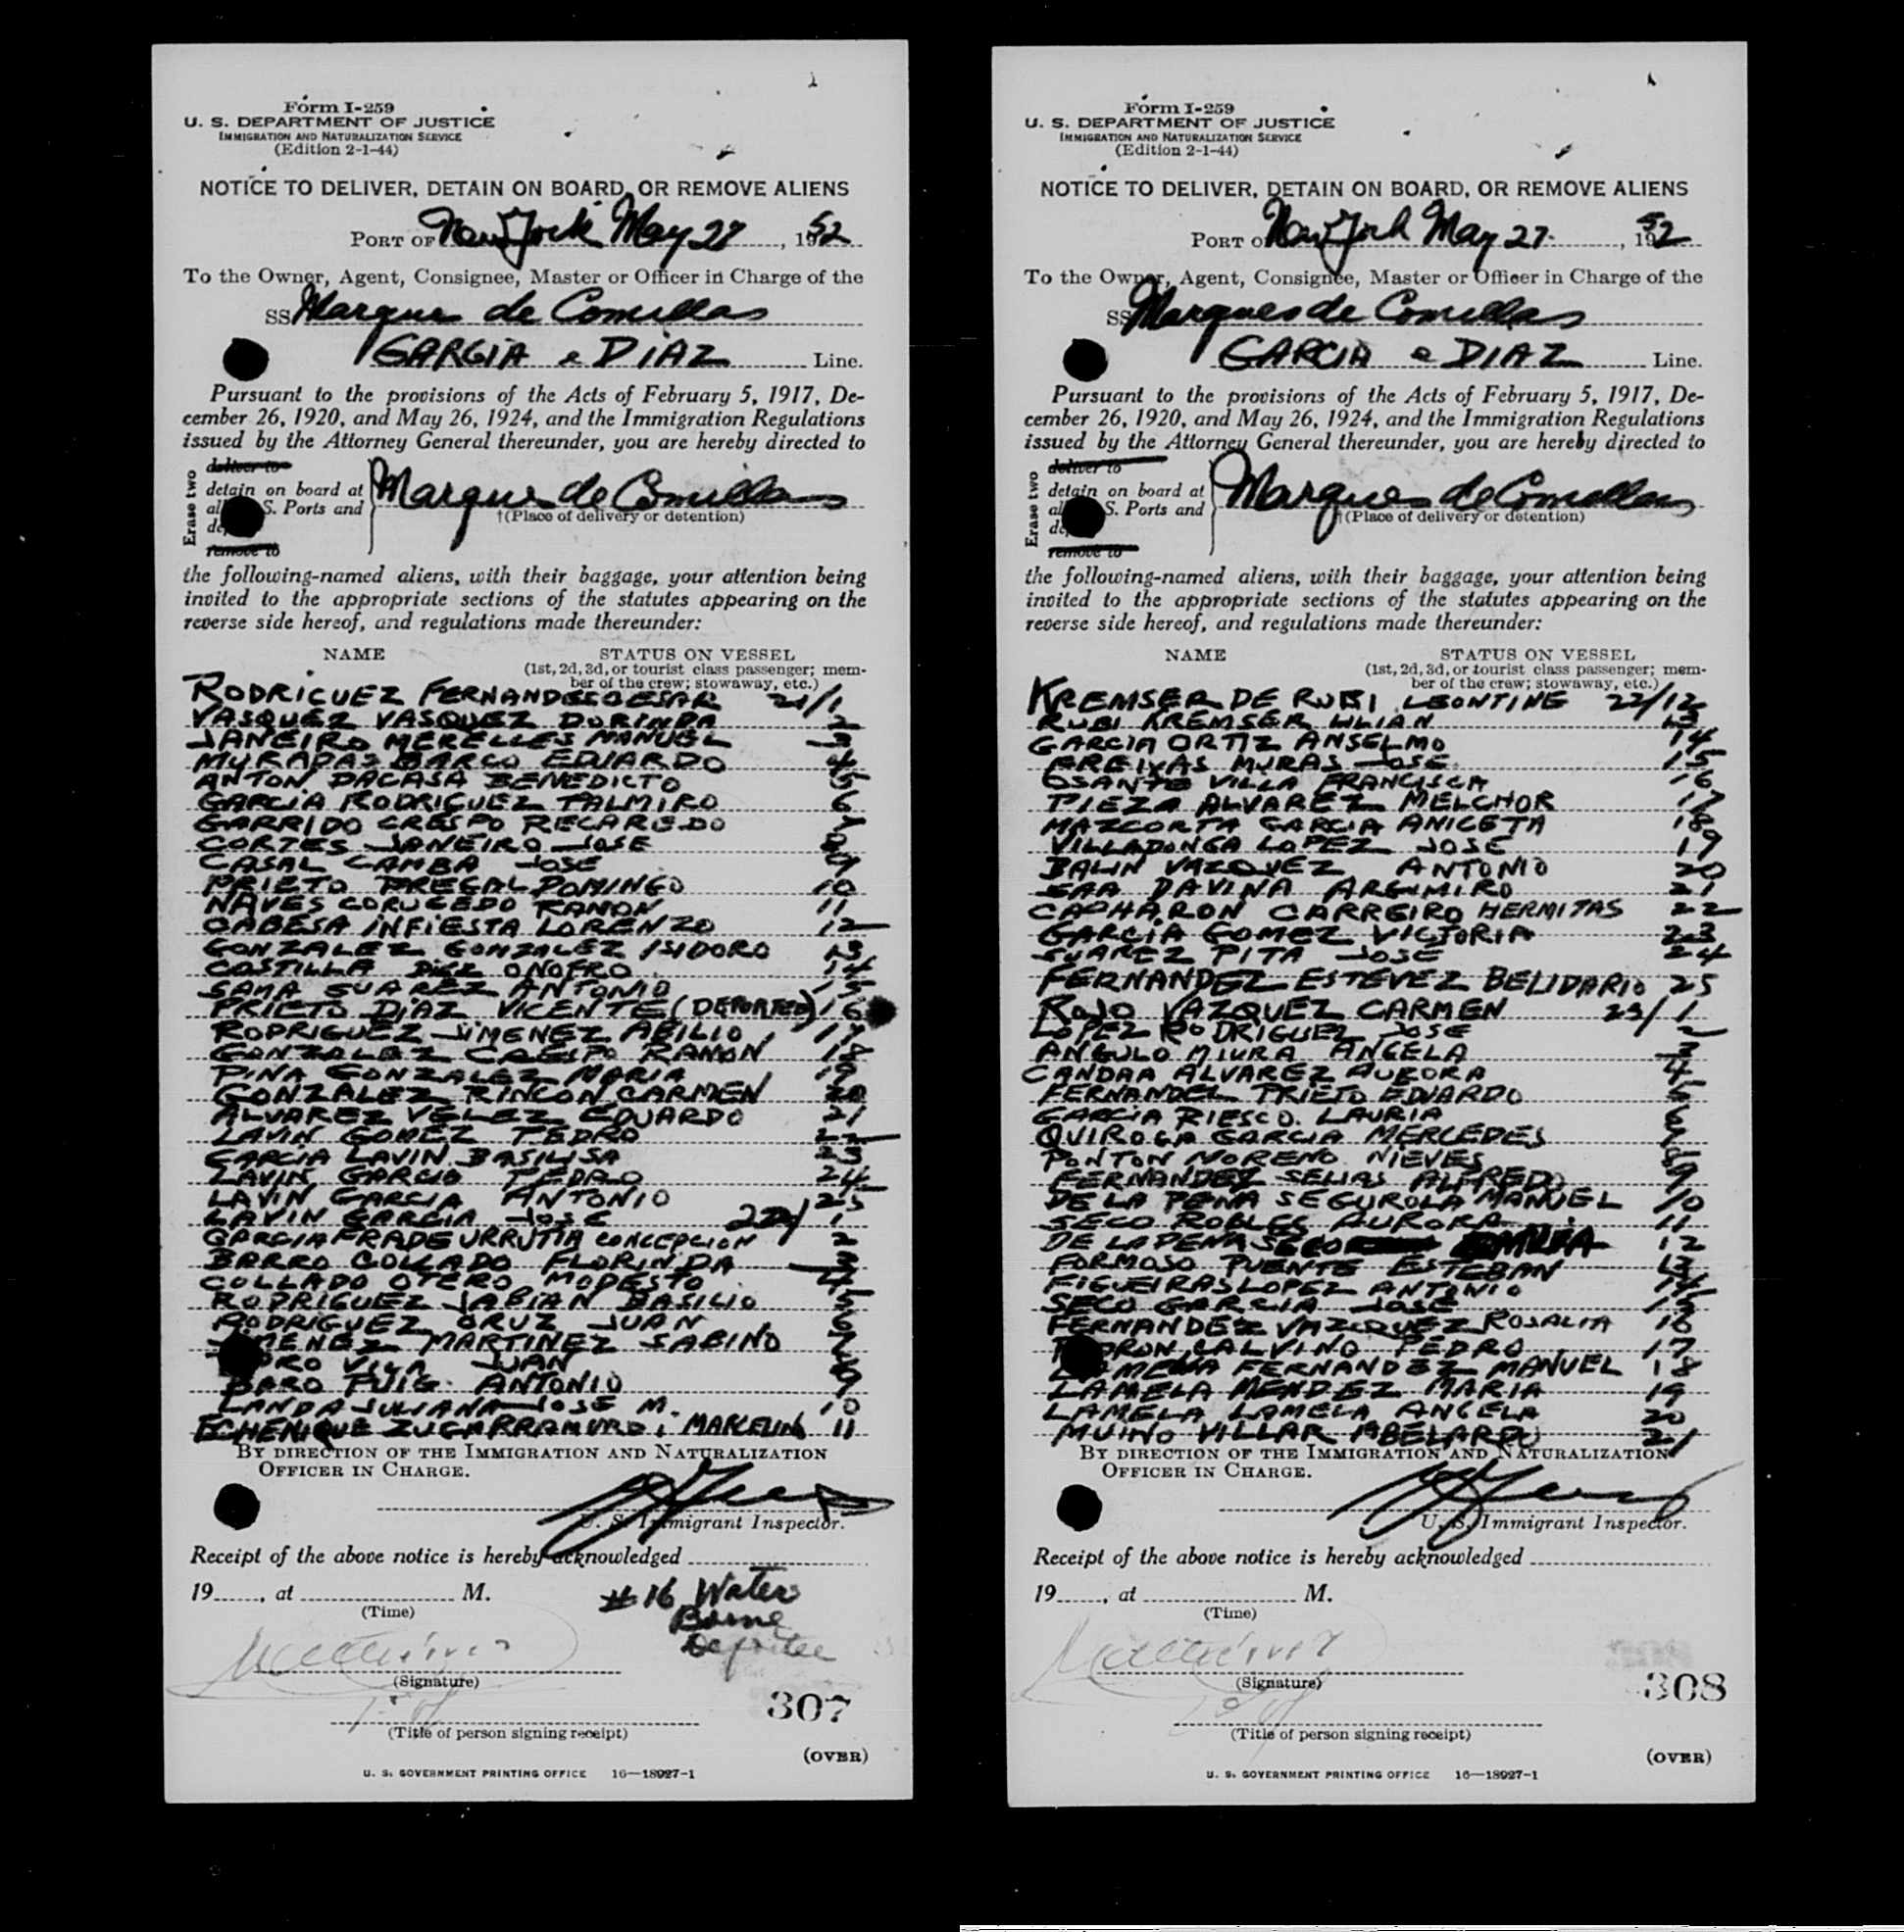 Form I-259
U. S. DEPARTMENT OF JUSTICE
IMMIGRATION AND NATURALIZATION SERVICE
(Edition 2-1-44)
NOTICE TO DELIVER, DETAIN ON BOARD, OR REMOVE ALIENS
PORT OF New York May 27, 1952
To the Owner, Agent, Consignee, Master or Officer in Charge of the
SS Marques de Comillas
GARCIA e DIAZ Line.
Pursuant to the provisions of the Acts of February 5, 1917, De-
cember 26, 1920, and May 26, 1924, and the Immigration Regulations
issued by the Attorney General thereunder, you are hereby directed to
Erase two
deliver to
detain on board at
S. Ports and
remove to
Marques de Comillas
†(Place of delivery or detention)
the following-named aliens, with their baggage, your attention being
invited to the appropriate sections of the statutes appearing on the
reverse side hereof, and regulations made thereunder:
NAME STATUS ON VESSEL
(1st, 2d, 3d, or tourist class passenger; mem-
ber of the crew; stowaway, etc.)
RODRIGUEZ FERNANDEZ CESAR 21/1
VASQUEZ VASQUEZ DORINDA 2
JANEIRO MERELLES MANUEL 3
MURADAS BARCO EDUARDO 4
ANTON DACASA BENEDICTO 5
GARCIA RODRIGUEZ TALMIRO 6
GARRIDO CRESPO RECAREDO 7
CORTES JANEIRO JOSE 8
CASAL CAMBA JOSE 9
PRIETO PREGAL DOMINGO 10
NAVES CORUGEDO RAMON 11
CABESA INFIESTA LORENZO 12
GONZALEZ GONZALEZ ISIDORO 13
COSTILLA DIEZ ONOFRO 14
SAMA SUAREZ ANTONIO 15
PRIETO DIAZ VICENTE (DEPORTED) 16
RODRIGUEZ JIMENEZ ABILIO 17
GONZALEZ CRESPO RAMON 18
PINA GONZALEZ MARIA 19
GONZALEZ RINCON CARMEN 20
ALVAREZ VELEZ EDUARDO 21
LAVIN GOMEZ PEDRO 22
GARCIA LAVIN BASILISA 23
LAVIN GARCIA PEDRO 24
LAVIN GARCIA ANTONIO 25
LAVIN GARCIA JOSE 22/1
GARCIA FRADE URRUTIA CONCEPCION 2
BARRO COLLADO FLORINDA 3
COLLADO OTERO MODESTO 4
RODRIGUEZ JABIAN BASILIO 5
RODRIGUEZ CRUZ JUAN 6
JIMENEZ MARTINEZ SABINO 7
VILA JUAN 8
BARO PUIG ANTONIO 9
LANDA JULIANA JOSE M. 10
ECHENIQUE ZUGARRAMURDI MARCELINO 11
BY DIRECTION OF THE IMMIGRATION AND NATURALIZATION
OFFICER IN CHARGE.
U. S. Immigrant Inspector.
Receipt of the above notice is hereby acknowledged
19, at M.
(Time)
#16 Water
Borne
Deportee
(Signature)
307
(Title of person signing receipt)
(OVER)
U. S. GOVERNMENT PRINTING OFFICE 16—18927-1
Form I-259
U. S. DEPARTMENT OF JUSTICE
IMMIGRATION AND NATURALIZATION SERVICE
(Edition 2-1-44)
NOTICE TO DELIVER, DETAIN ON BOARD, OR REMOVE ALIENS
PORT OF New York May 27, 1952
To the Owner, Agent, Consignee, Master or Officer in Charge of the
SS Marques de Comillas
GARCIA e DIAZ Line.
Pursuant to the provisions of the Acts of February 5, 1917, De-
cember 26, 1920, and May 26, 1924, and the Immigration Regulations
issued by the Attorney General thereunder, you are hereby directed to
Erase two
deliver to
detain on board at
S. Ports and
remove to
Marques de Comillas
†(Place of delivery or detention)
the following-named aliens, with their baggage, your attention being
invited to the appropriate sections of the statutes appearing on the
reverse side hereof, and regulations made thereunder:
NAME STATUS ON VESSEL
(1st, 2d, 3d, or tourist class passenger; mem-
ber of the crew; stowaway, etc.)
KREMSER DE RUBI LEONTINE 22/12
RUBI KREMSER LILIAN 13
GARCIA ORTIZ ANSELMO 14
FREIXAS MURAS JOSE 15
OSANTE VILLA FRANCISCA 16
PIEZA ALVAREZ MELCHOR 17
MAZCORTA GARCIA ANICETA 18
VILLADONGA LOPEZ JOSE 19
BALIN VAZQUEZ ANTONIO 20
SAA DAVINA ARGIMIRO 21
CAPHARON CARREIRO HERMITAS 22
GARCIA GOMEZ VICTORIA 23
SUAREZ PITA JOSE 24
FERNANDEZ ESTEVEZ BELIDARIO 25
ROJO VAZQUEZ CARMEN 23/1
LOPEZ RODRIGUEZ JOSE 2
ANGULO MIURA ANGELA 3
CANDAA ALVAREZ AURORA 4
FERNANDEL PRIETO EDUARDO 5
GARCIA RIESCO LAURIA 6
QUIROGA GARCIA MERCEDES 7
PONTON MORENO NIEVES 8
FERNANDEZ SELIAS ALFREDO 9
DE LA PENA SEGUROLA MANUEL 10
SECO ROBLES AURORA 11
DE LA PENA SECO EMILIA 12
FORMOSO PUENTE ESTEBAN 13
FIGUEIRAS LOPEZ ANTONIO 14
SECO GARCIA JOSE 15
FERNANDEZ VAZQUEZ ROSALIA 16
CALVINO PEDRO 17
FERNANDEZ MANUEL 18
LAMELA MENDEZ MARIA 19
LAMELA LAMELA ANGELA 20
MUINO VILLAR ABELARDO 21
BY DIRECTION OF THE IMMIGRATION AND NATURALIZATION
OFFICER IN CHARGE.
U. S. Immigrant Inspector.
Receipt of the above notice is hereby acknowledged
19, at M.
(Time)
(Signature)
308
(Title of person signing receipt)
(OVER)
U. S. GOVERNMENT PRINTING OFFICE 16—18927-1